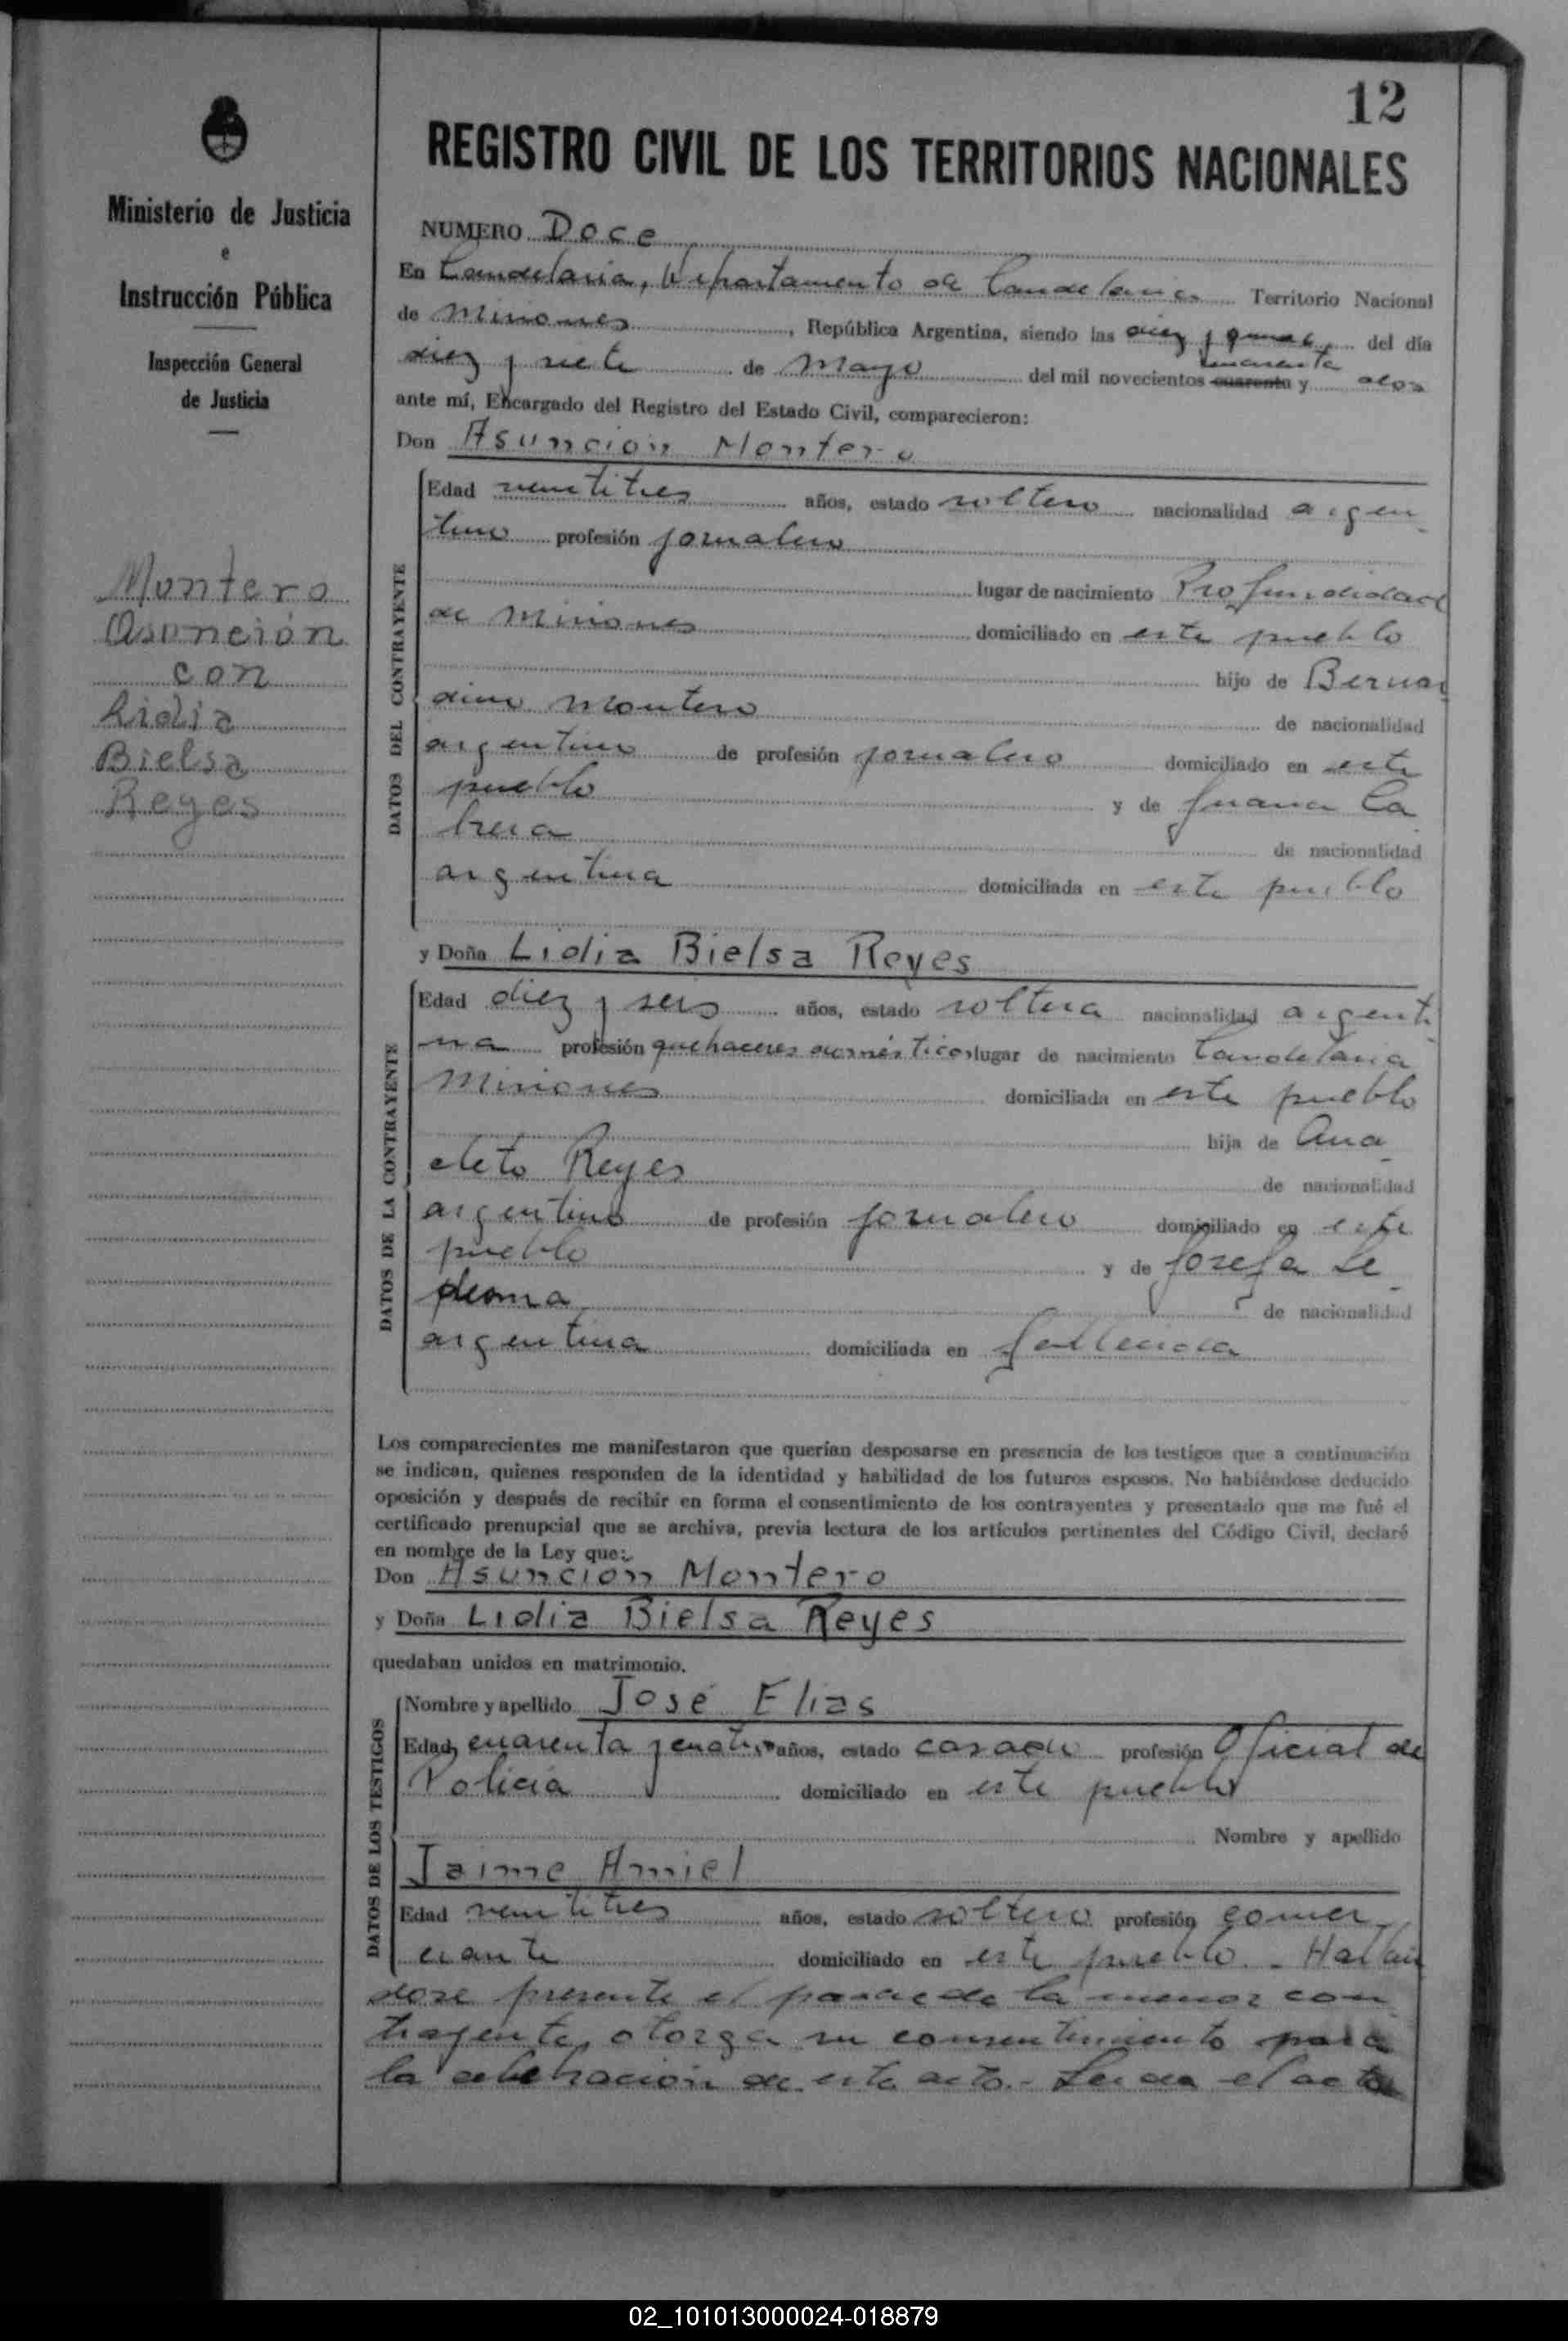 12
REGISTRO CIVIL DE LOS TERRITORIOS NACIONALES
Ministerio de Justicia
e
Instrucción Pública
Inspección General
de Justicia
Montero
Asunción
con
Lidia
Bielsa
Reyes
NUMERO Doce
En Candelaria, Departamento de Candelaria Territorio Nacional
de Misiones, República Argentina, siendo las diez y quince, del día
diez y siete de Mayo del mil novecientos cuarenta cuarenta y dos
ante mí, Encargado del Registro del Estado Civil, comparecieron:
Don Asunción Montero
DATOS DEL CONTRAYENTE
Edad veintitres años, estado soltero nacionalidad argen
tino profesión jornalero
lugar de nacimiento Profundidad
de Misiones domiciliado en este pueblo
hijo de Bernar
dino Montero de nacionalidad
argentino de profesión jornalero domiciliado en este
pueblo y de Juana Ca
brera de nacionalidad
argentina domiciliada en este pueblo
y Doña Lidia Bielsa Reyes
DATOS DE LA CONTRAYENTE
Edad diez y seis años, estado soltera nacionalidad argenti
na profesión quehaceres domésticos lugar de nacimiento Candelaria
Misiones domiciliada en este pueblo
hija de Ana
cleto Reyes de nacionalidad
argentino de profesión jornalero domiciliado en este
pueblo y de Josefa Le
desma de nacionalidad
argentina domiciliada en fallecida
Los comparecientes me manifestaron que querían desposarse en presencia de los testigos que a continuación
se indican, quienes responden de la identidad y habilidad de los futuros esposos. No habiéndose deducido
oposición y después de recibir en forma el consentimiento de los contrayentes y presentado que me fué el
certificado prenupcial que se archiva, previa lectura de los artículos pertinentes del Código Civil, declaré
en nombre de la Ley que:
Don Asunción Montero
y Doña Lidia Bielsa Reyes
quedaban unidos en matrimonio.
DATOS DE LOS TESTIGOS
Nombre y apellido José Elias
Edad cuarenta y cuatro años, estado casado profesión Oficial de
Policía domiciliado en este pueblo
Nombre y apellido
Jaime Amiel
Edad veintitres años, estado soltero profesión comer
ciante domiciliado en este pueblo. - Hallan
dose presente el padre de la menor con
trayente, otorga su consentimiento para
la celebración de este acto. - Leida el acta
02_101013000024-018879